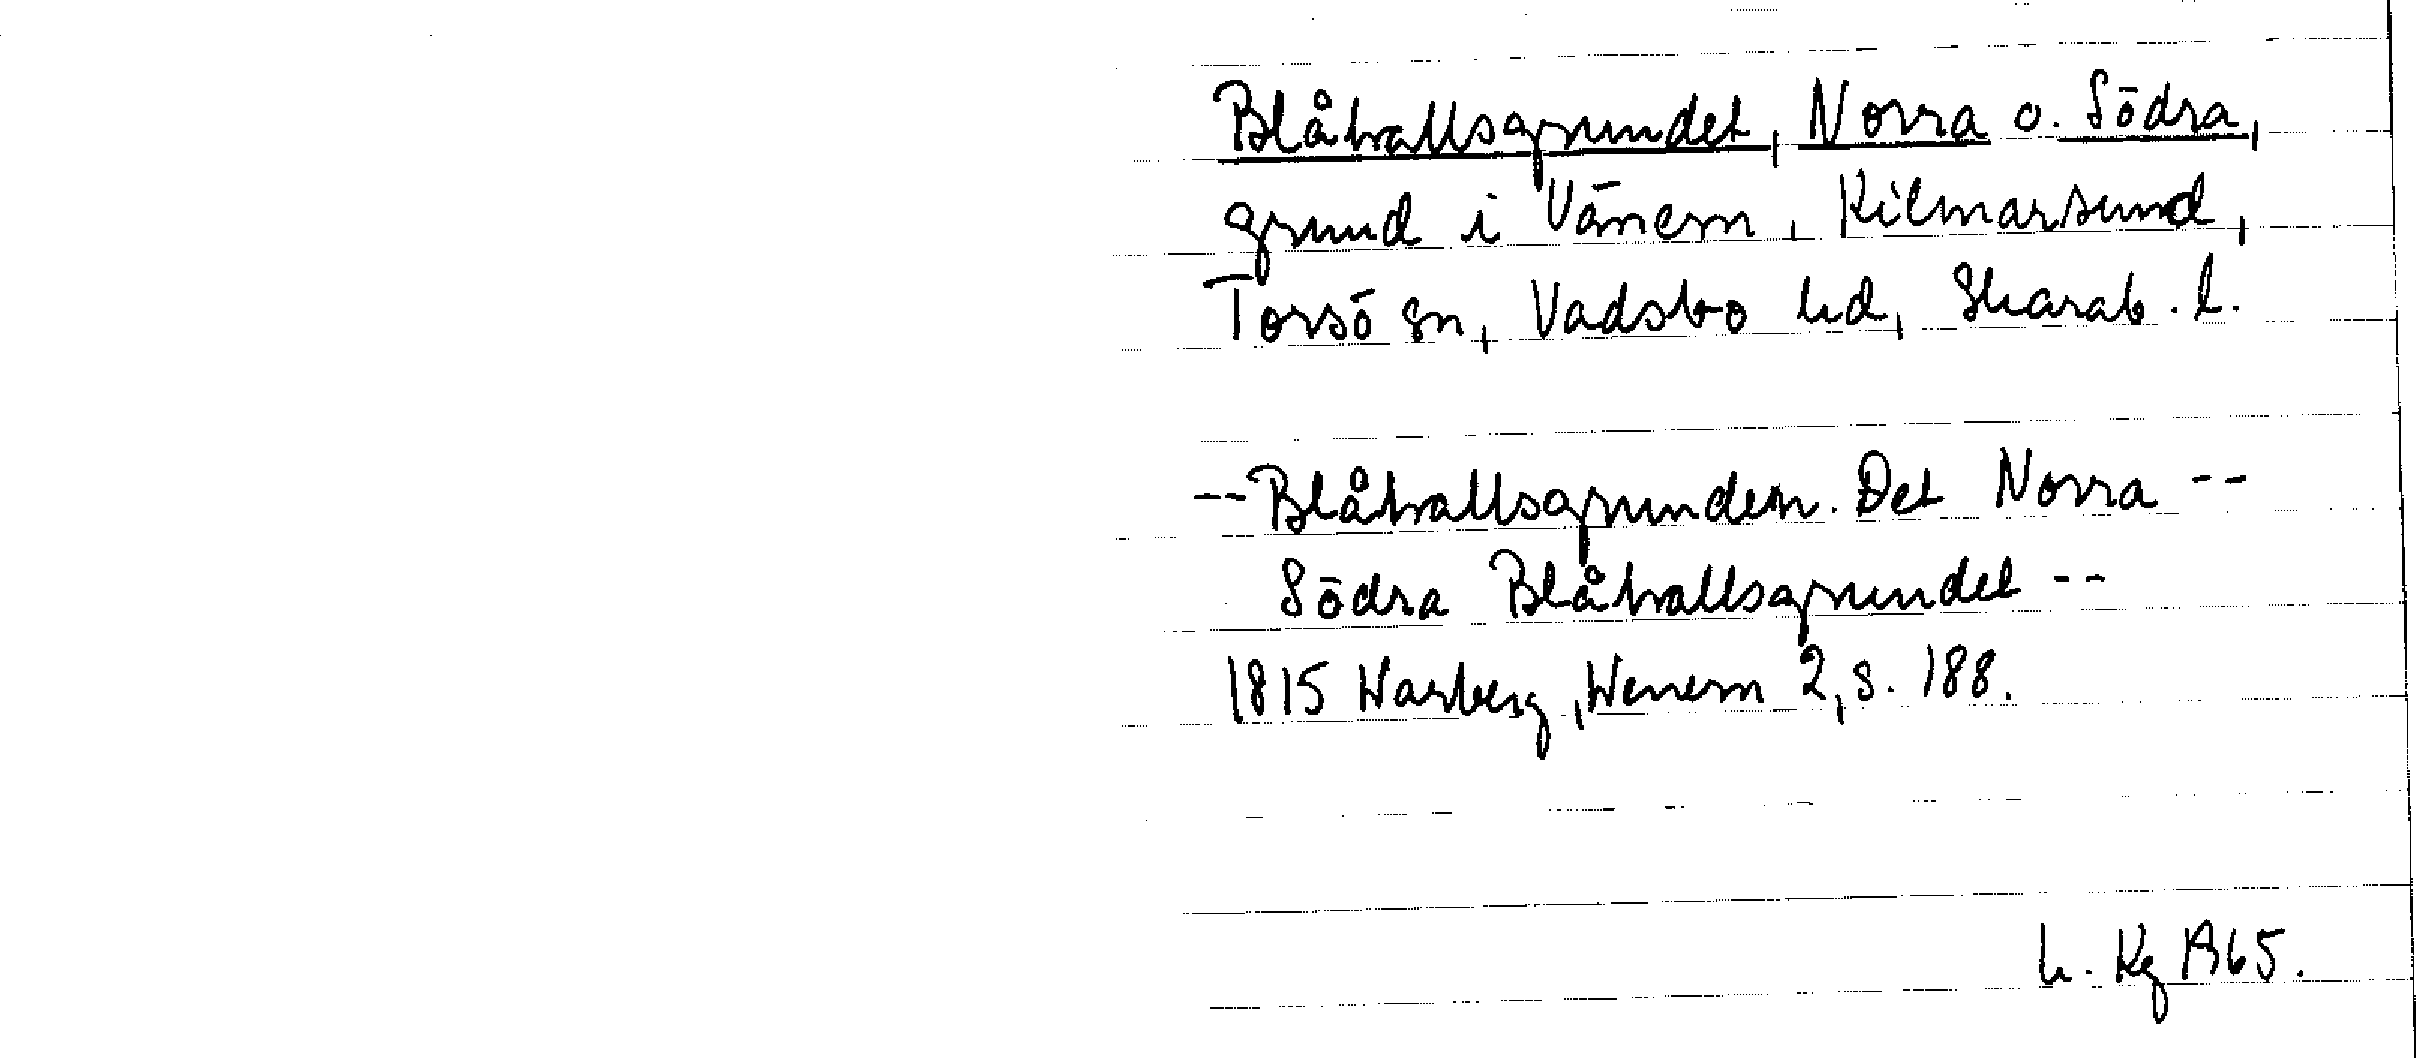 Blåhallsgrundet, Norra o. Södra,
grund i Vänern, Kilmarsund,
Torsö sn, Vadsbo hd, Skarab. l.
-- Blåhallsgrunden. Det Norra --
Södra Blåhallsgrundet --
1815 Warberg, Wenern 2, s. 188.
h. Kg 1965.